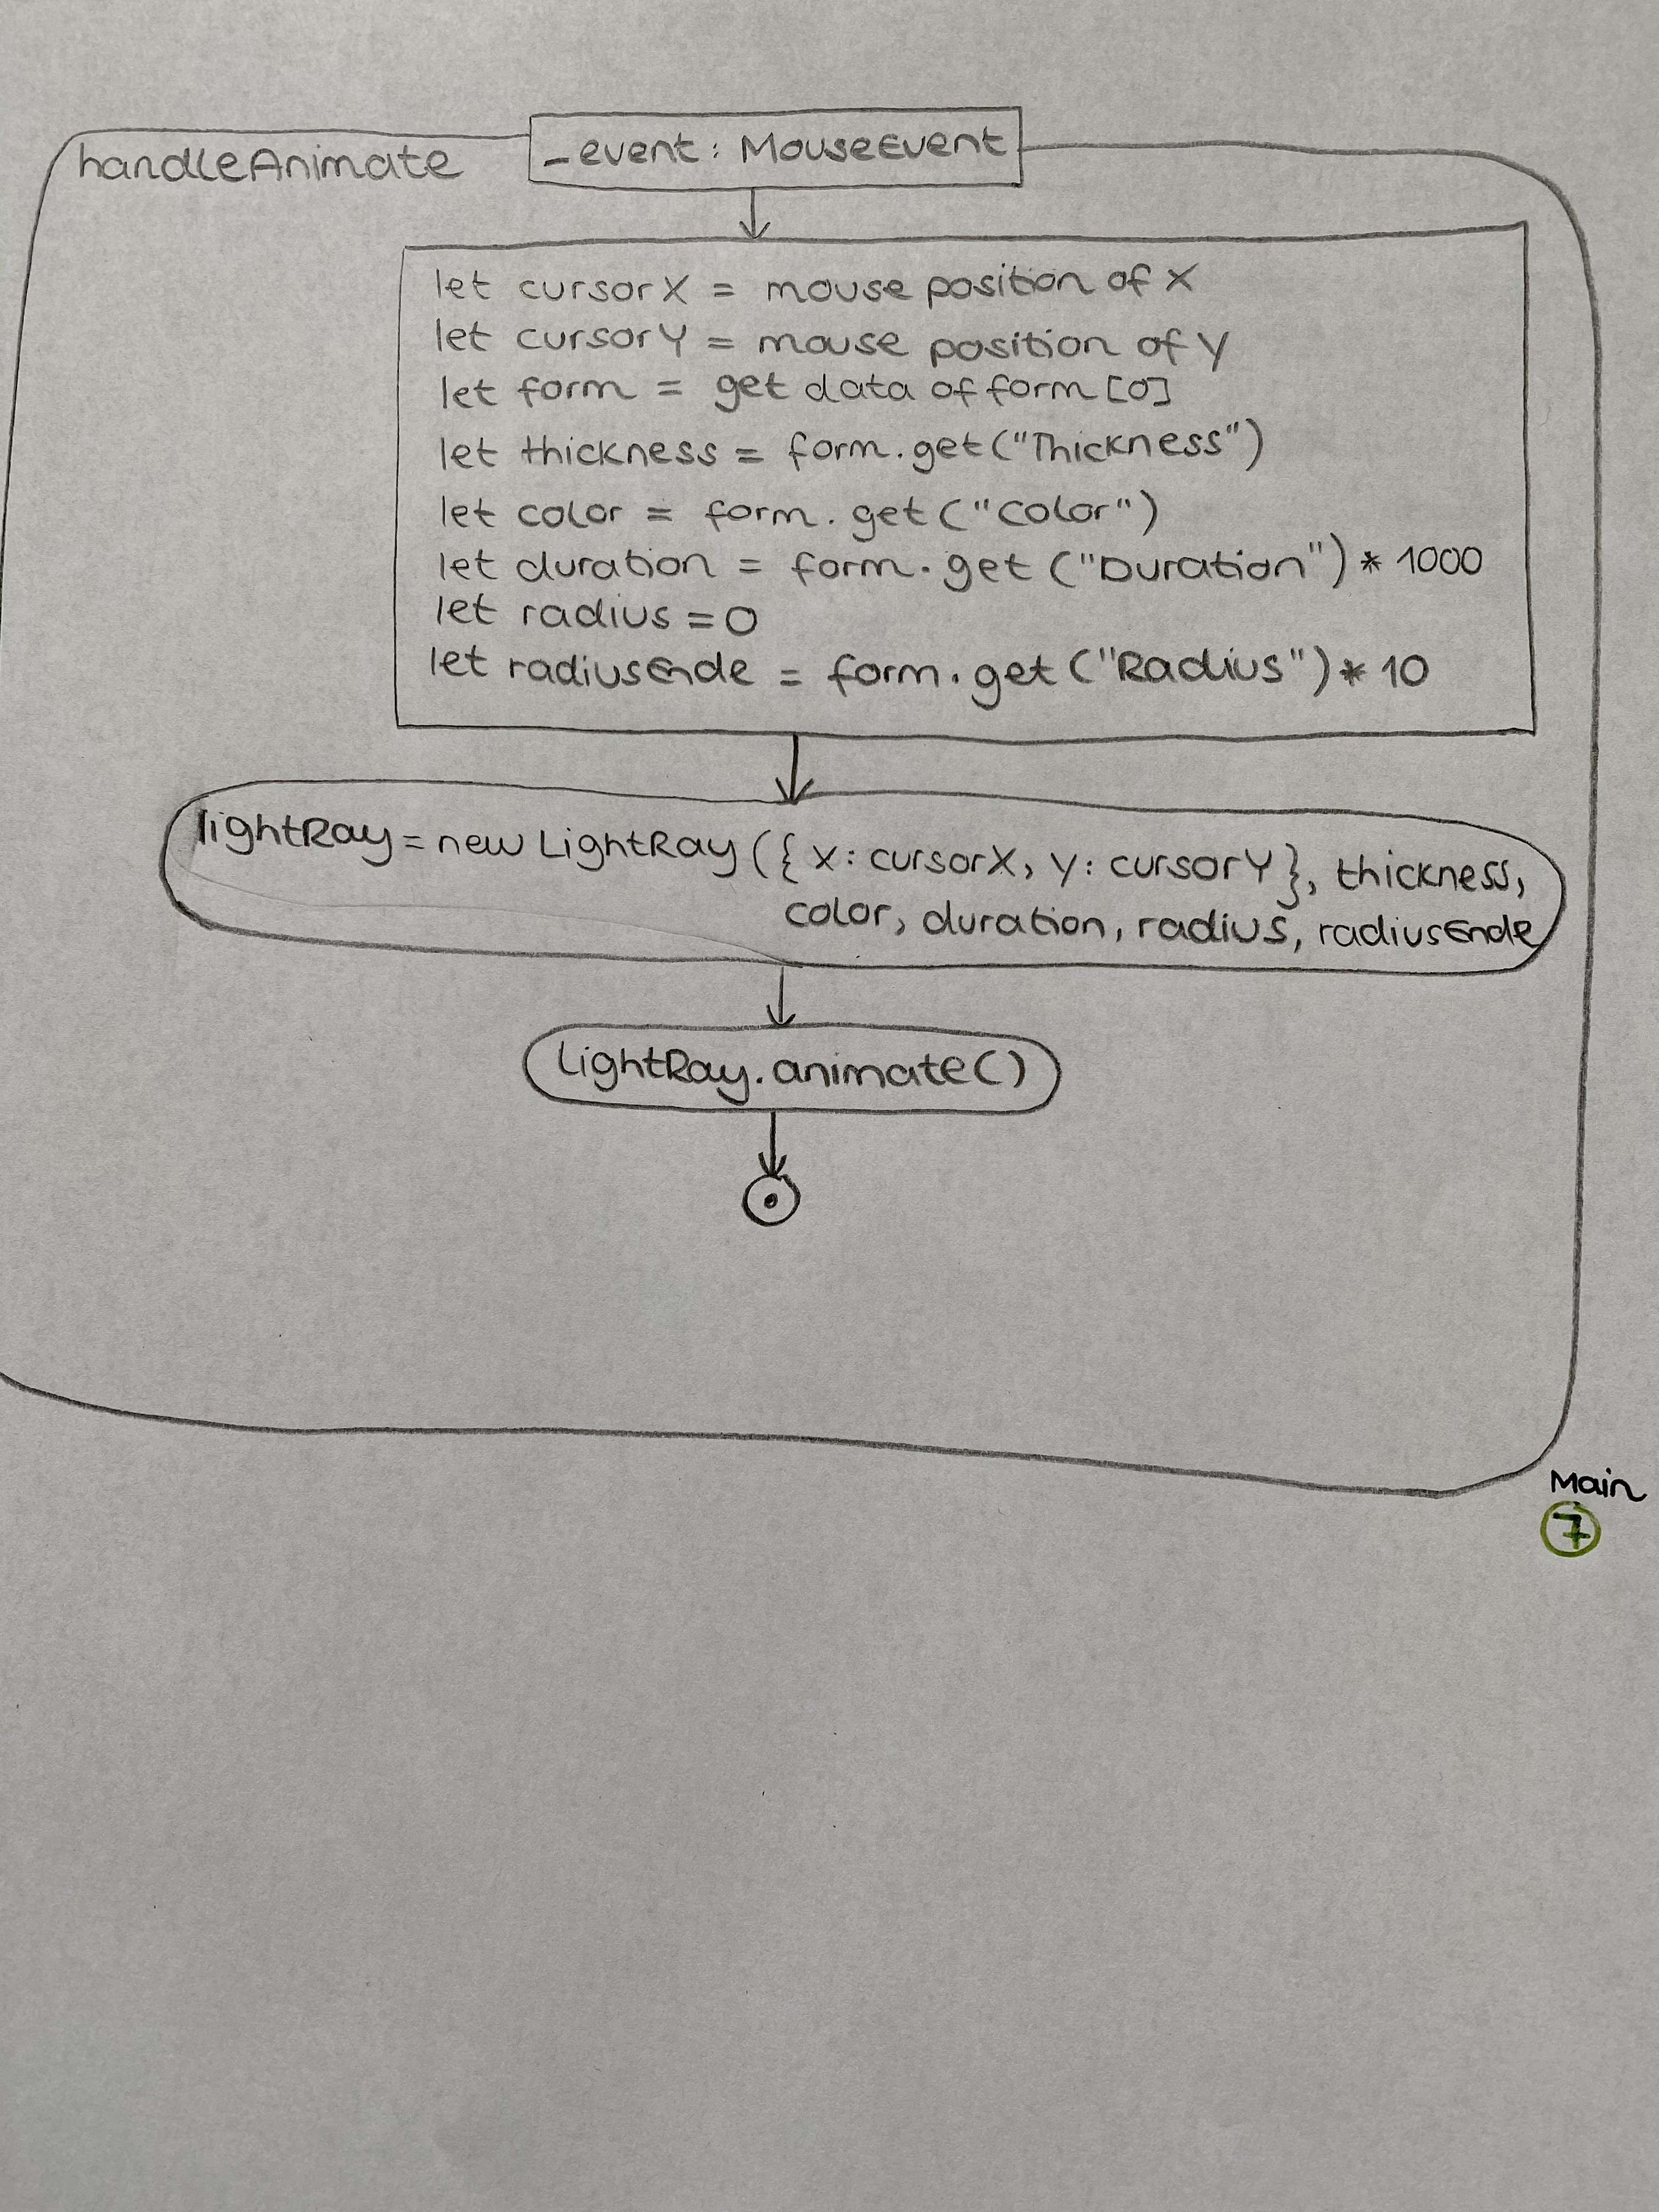 handleAnimate
_event: MouseEvent
let cursorX = mouse position of X
let cursorY = mouse position of Y
let form = get data of form [0]
let thickness = form.get("Thickness")
let color = form.get("Color")
let duration = form.get("Duration") * 1000
let radius = 0
let radiusEnde = form.get("Radius") * 10
lightRay = new LightRay ({ x: cursorX, y: cursorY }, thickness,
color, duration, radius, radiusEnde
lightRay.animate()
Main
7